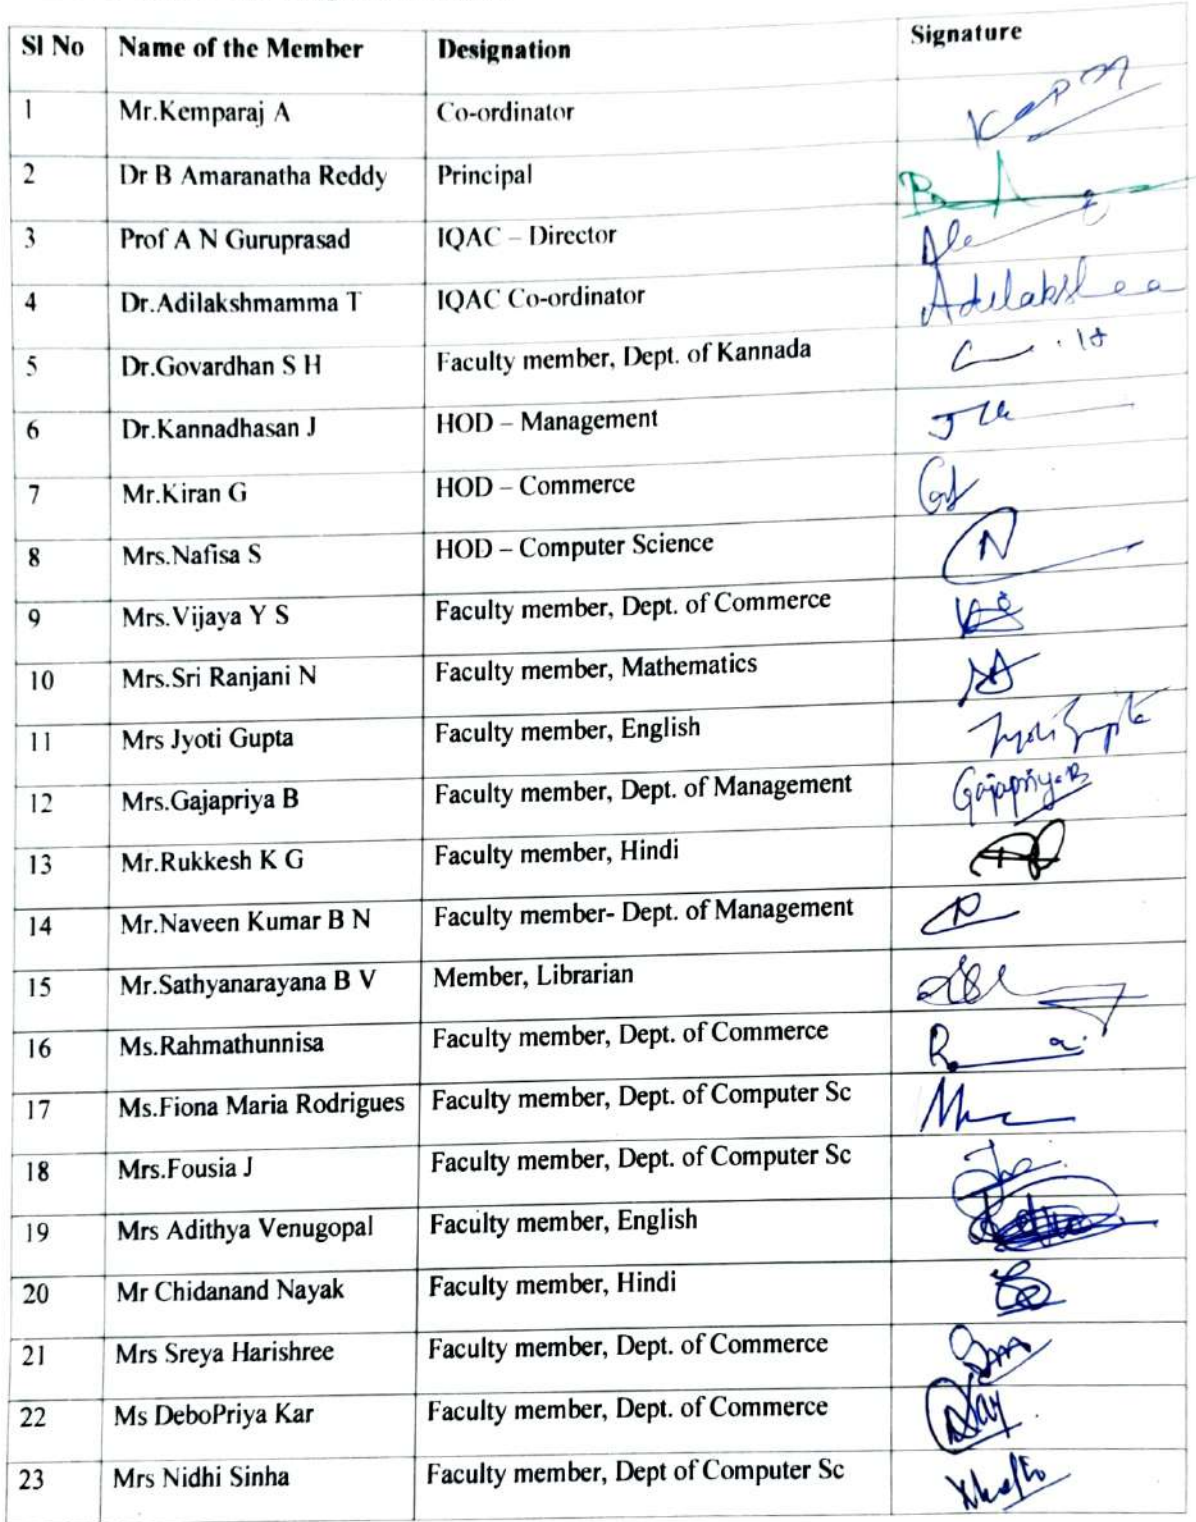 Sl No Name of the Member Designation Signature
1 Mr.Kemparaj A Co-ordinator
2 Dr B Amaranatha Reddy Principal
3 Prof A N Guruprasad IQAC – Director
4 Dr.Adilakshmamma T IQAC Co-ordinator
5 Dr.Govardhan S H Faculty member, Dept. of Kannada
6 Dr.Kannadhasan J HOD – Management
7 Mr.Kiran G HOD – Commerce
8 Mrs.Nafisa S HOD – Computer Science N
9 Mrs.Vijaya Y S Faculty member, Dept. of Commerce
10 Mrs.Sri Ranjani N Faculty member, Mathematics
11 Mrs Jyoti Gupta Faculty member, English Jyoti Gupta
12 Mrs.Gajapriya B Faculty member, Dept. of Management Gajapriya.B
13 Mr.Rukkesh K G Faculty member, Hindi
14 Mr.Naveen Kumar B N Faculty member- Dept. of Management
15 Mr.Sathyanarayana B V Member, Librarian
16 Ms.Rahmathunnisa Faculty member, Dept. of Commerce
17 Ms.Fiona Maria Rodrigues Faculty member, Dept. of Computer Sc
18 Mrs.Fousia J Faculty member, Dept. of Computer Sc
19 Mrs Adithya Venugopal Faculty member, English
20 Mr Chidanand Nayak Faculty member, Hindi
21 Mrs Sreya Harishree Faculty member, Dept. of Commerce
22 Ms DeboPriya Kar Faculty member, Dept. of Commerce
23 Mrs Nidhi Sinha Faculty member, Dept of Computer Sc